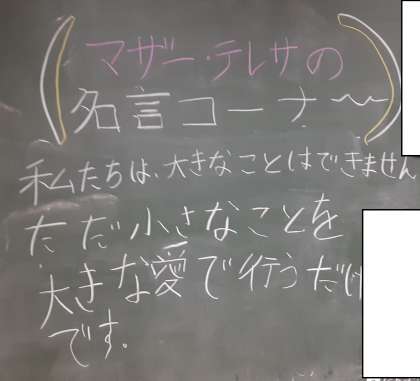 マザー・テレサの
名言コーナ〜
私たちは、大きなことはできません
ただ小さなことを
大きな愛で行うだけ
です。